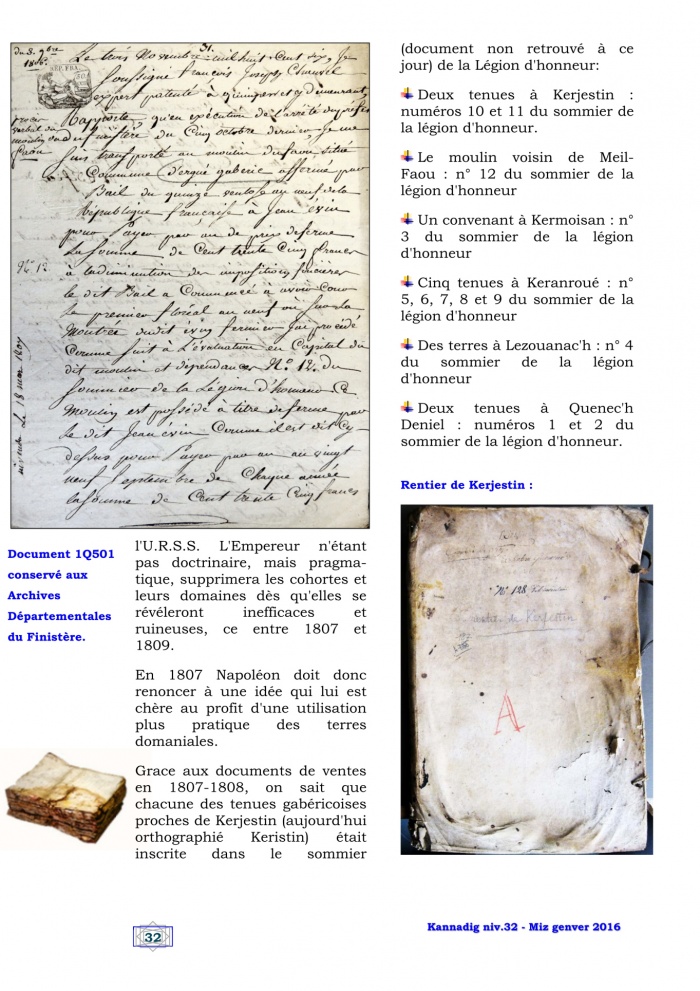 31.
du 3. 9bre
1806.
REP. FRA.
Le trois Novembre mil huit cent six, Je
Soussigné françois Joseph
expert patenté à quimper et y demeurant,
Rapporte, qu'en exécution de l'arrêté du préfet
du finistère du Cinq octobre dernier, je me
procès
verbal du
moulin du
faou
suis transporté au moulin du faou situé
Commune d'ergué gabéric affermé par
Bail du quinze ventôse an neuf de la
République française à Jean évin
pour payer par an de prix de ferme
La somme de Cent trente Cinq francs
N° 12
à la diminution des impositions foncières
le dit Bail a Commencé à avoir Cours
le premier floréal an neuf où sur la
Montrée dudit évin fermier j'ai procédé
Comme suit à l'évaluation en Capital du
dit moulin et dépendances N° 12. du
Sommier de la Légion d'honneur Ce
Moulin est possédé à titre de ferme par
le dit Jean évin Comme il est dit Cy-
dessus pour payer par an au vingt
neuf Septembre de Chaque année
la somme de Cent trente Cinq francs
Le 18 mai 1807
Document 1Q501
conservé aux
Archives
Départementales
du Finistère.
l'U.R.S.S. L'Empereur n'étant
pas doctrinaire, mais pragma-
tique, supprimera les cohortes et
leurs domaines dès qu'elles se
révéleront inefficaces et
ruineuses, ce entre 1807 et
1809.
En 1807 Napoléon doit donc
renoncer à une idée qui lui est
chère au profit d'une utilisation
plus pratique des terres
domaniales.
Grace aux documents de ventes
en 1807-1808, on sait que
chacune des tenues gabéricoises
proches de Kerjestin (aujourd'hui
orthographié Keristin) était
inscrite dans le sommier
(document non retrouvé à ce
jour) de la Légion d'honneur:
Deux tenues à Kerjestin :
numéros 10 et 11 du sommier de
la légion d'honneur.
Le moulin voisin de Meil-
Faou : n° 12 du sommier de la
légion d'honneur
Un convenant à Kermoisan : n°
3 du sommier de la légion
d'honneur
Cinq tenues à Keranroué : n°
5, 6, 7, 8 et 9 du sommier de la
légion d'honneur
Des terres à Lezouanac'h : n° 4
du sommier de la légion
d'honneur
Deux tenues à Quenec'h
Deniel : numéros 1 et 2 du
sommier de la légion d'honneur.
Rentier de Kerjestin :
N° 128
de Kerjestin
A
32
Kannadig niv.32 - Miz genver 2016